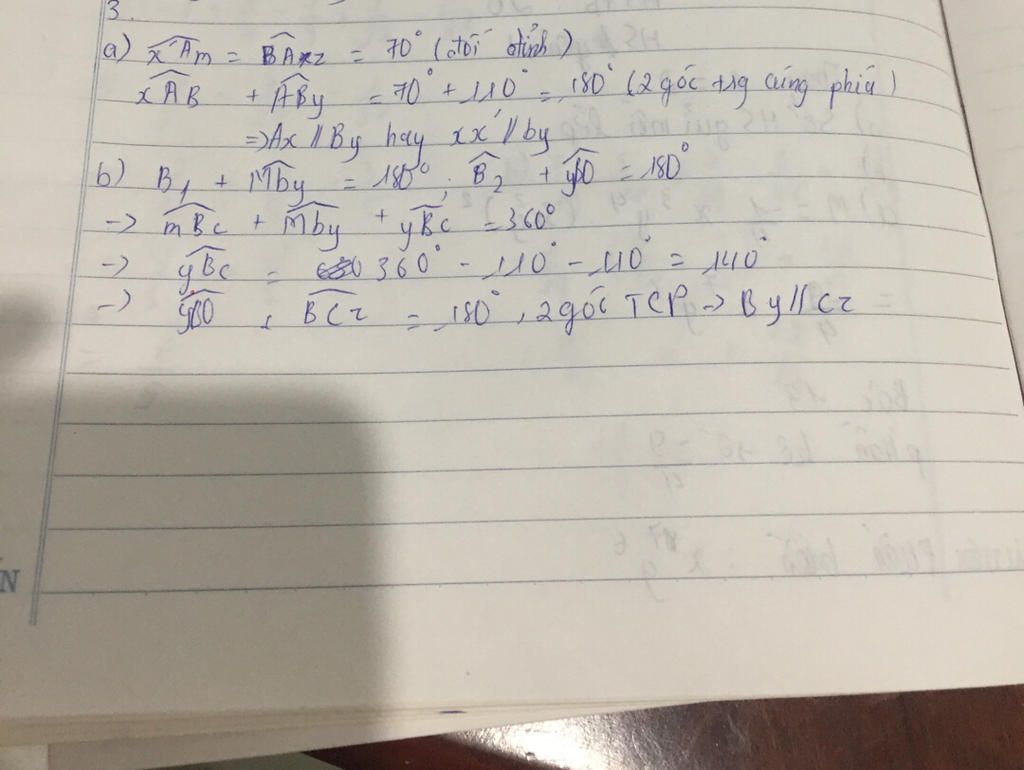 3.
a) x'Am = BAxz = 70° (đối đỉnh)
xAB + ABy = 70° + 110° = 180° (2 góc trg cùng phía)
=> Ax // By hay xx' // by
b) B1 + Mby = 180° ; B2 + yBO = 180°
-> mBc + Mby + yBc = 360°
-> yBc = 360° - 110° - 110° = 140°
-> yBO , BCz = 180° , 2 góc TCP -> By // Cz
N